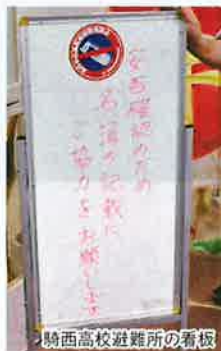 安否確認のため
名簿の記載に
ご協力をお願いします
騎西高校避難所の看板